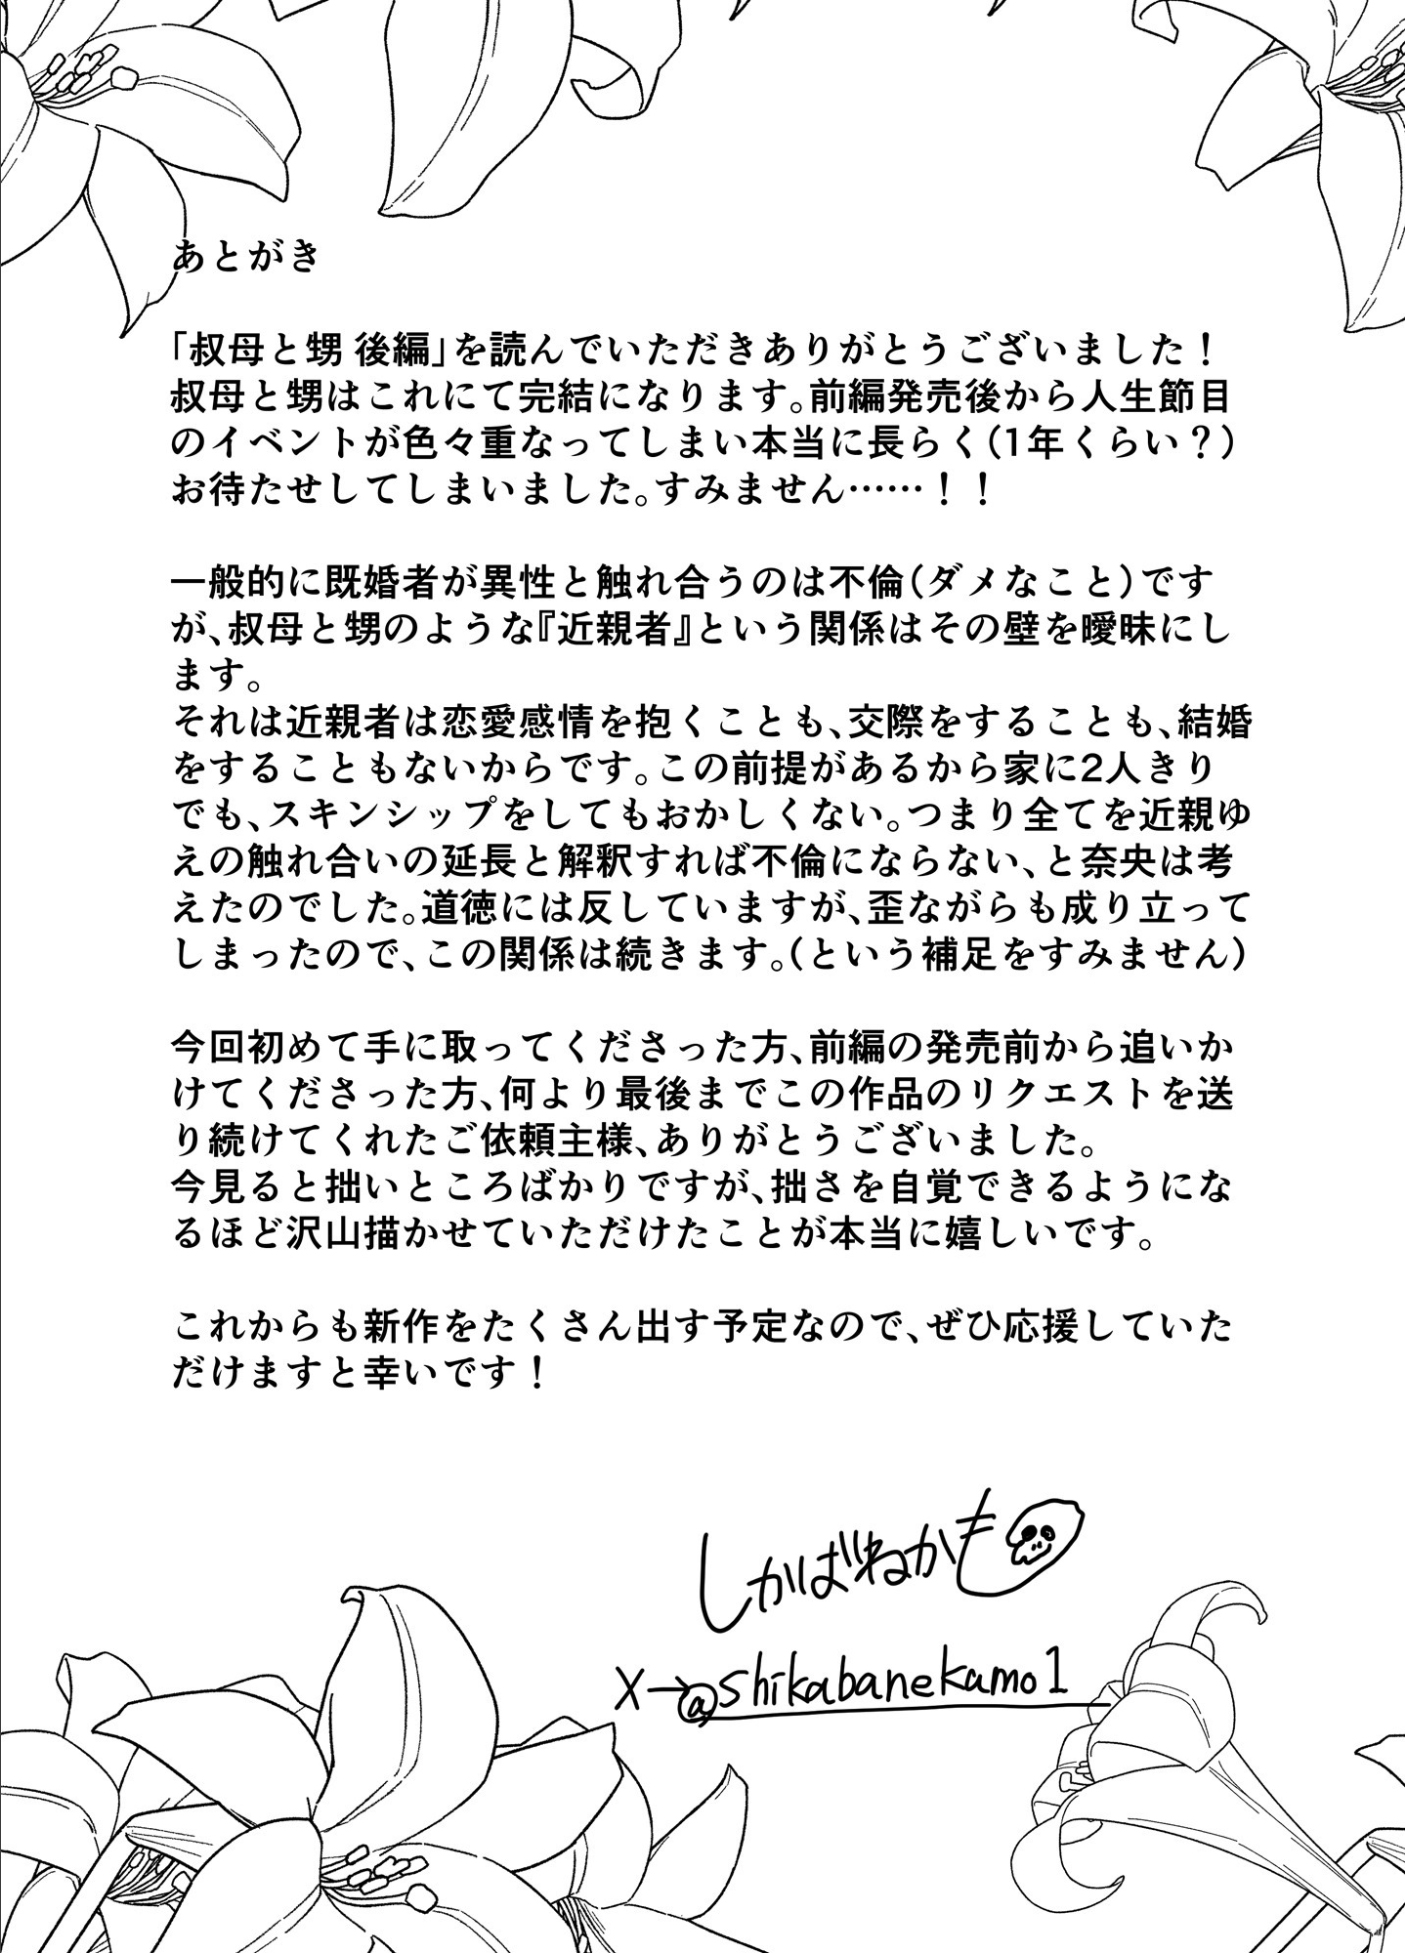 あとがき
「叔母と甥 後編」を読んでいただきありがとうございました！
叔母と甥はこれにて完結になります。前編発売後から人生節目
のイベントが色々重なってしまい本当に長らく（1年くらい？）
お待たせしてしまいました。すみません……！！
一般的に既婚者が異性と触れ合うのは不倫（ダメなこと）です
が、叔母と甥のような『近親者』という関係はその壁を曖昧にし
ます。
それは近親者は恋愛感情を抱くことも、交際をすることも、結婚
をすることもないからです。この前提があるから家に2人きり
でも、スキンシップをしてもおかしくない。つまり全てを近親ゆ
えの触れ合いの延長と解釈すれば不倫にならない、と奈央は考
えたのでした。道徳には反していますが、歪ながらも成り立って
しまったので、この関係は続きます。（という補足をすみません）
今回初めて手に取ってくださった方、前編の発売前から追いか
けてくださった方、何より最後までこの作品のリクエストを送
り続けてくれたご依頼主様、ありがとうございました。
今見ると拙いところばかりですが、拙さを自覚できるようにな
るほど沢山描かせていただけたことが本当に嬉しいです。
これからも新作をたくさん出す予定なので、ぜひ応援していた
だけますと幸いです！
しかばねかも
X→@shikabanekamo1